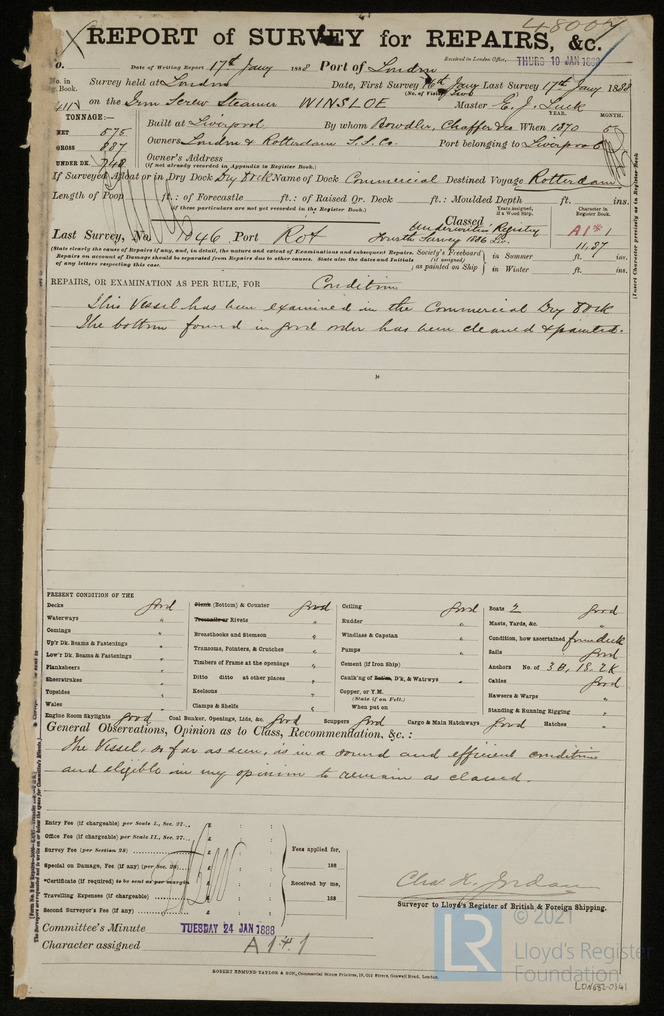 48007
REPORT of SURVEY for REPAIRS, &c.
Received in London Office, THURS 19 JAN 1888
Date of Writing Report 17th Jany 1888 Port of London
No. in Survey held at London Date, First Survey 16th Jany Last Survey 17th Jany 1888
Book. (No. of Visits) Two
on the Iron Screw Steamer WINSLOE Master E. J. Luck
TONNAGE:— YEAR. MONTH.
NET 575 Built at Liverpool By whom Bowdler, Chaffer & Co When 1870 5
GROSS 887 Owners London & Rotterdam S.S. Co. Port belonging to Liverpool
UNDER DK. 748 Owner's Address
(if not already recorded in Appendix to Register Book.)
If Surveyed Afloat or in Dry Dock Dry Dock Name of Dock Commercial Destined Voyage Rotterdam
Length of Poop ft.: of Forecastle ft.: of Raised Qr. Deck ft.: Moulded Depth ft. ins.
(if these particulars are not yet recorded in the Register Book.)
Years Assigned, if a Wood Ship. Character in Register Book.
Last Survey, No. 1046 Port Rot Classed Underwriters Registry A1*1
Fourth Survey 1886 Liv. 11.87
(State clearly the causes of Repairs if any, and, in detail, the nature and extent of Examinations and subsequent Repairs.
Repairs on account of Damage should be separated from Repairs due to other causes. State also the dates and Initials
of any letters respecting this case.
Society's Freeboard (if assigned) as painted on Ship in Summer ft. ins.
in Winter ft. ins.
REPAIRS, OR EXAMINATION AS PER RULE, FOR Condition
This Vessel has been examined in the Commercial Dry Dock
The bottom found in good order has been cleaned & painted.
PRESENT CONDITION OF THE
Decks good
Waterways "
Comings "
Up'r Dk. Beams & Fastenings "
Low'r Dk. Beams & Fastenings "
Planksheers "
Sheerstrakes "
Topsides "
Wales "
Engine Room Skylights good
(Bottom) & Counter good
Treenails or Rivets "
Breasthooks and Stemson "
Transoms, Pointers, & Crutches "
Timbers of Frame at the openings "
Ditto ditto at other places "
Keelsons "
Clamps & Shelfs "
Coal Bunker, Openings, Lids, &c. good
Ceiling good
Rudder "
Windlass & Capstan "
Pumps "
Cement (if from Ship)
Caulk'g of D'k, & Watrwys "
Copper, or Y.M.
(State if on Felt.)
When put on
Scuppers good
Cargo & Main Hatchways good
Boats 2 good
Masts, Yards, &c. "
Condition, how ascertained from deck
Sails good
Anchors No. of 3B, 1S, 2K
Cables good
Hawsers & Warps "
Standing & Running Rigging "
Hatches "
General Observations, Opinion as to Class, Recommendation, &c.:
The Vessel, so far as seen, is in a sound and efficient condition
and eligible in my opinion to remain as classed.
Entry Fee (if chargeable) per Scale I., Sec. 27... £ : :
Office Fee (if chargeable) per Scale II., Sec. 27... £ : :
Survey Fee (per Section 28) £ : :
Special on Damage, Fee (if any) (per Sec. 28) £ : :
*Certificate (if required) to be sent as per margin £ : :
Travelling Expenses (if chargeable) £ : :
Second Surveyor's Fee (if any) £ : :
Fees applied for,
188
Received by me,
188
Chas. H. Jordan
Surveyor to Lloyd's Register of British & Foreign Shipping.
Committee's Minute TUESDAY 24 JAN 1888
Character assigned A1*1
ROBERT EDMUND TAYLOR & SON, Commercial Steam Printers, 19, Old Street, Goswell Road, London.
© 2021
LR Lloyd's Register
Foundation
LON682-0341